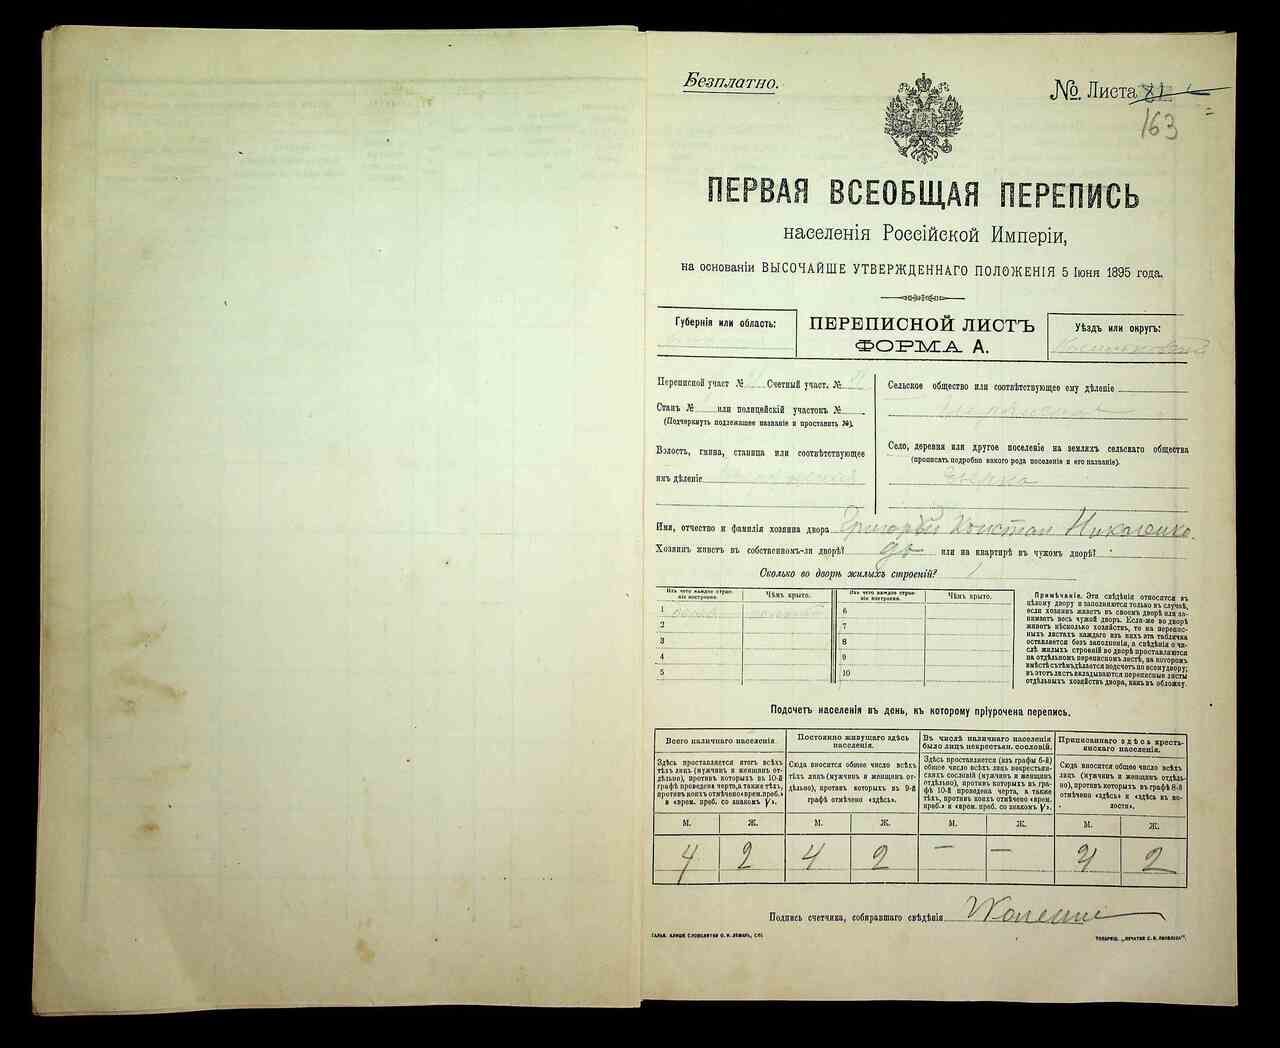 Безплатно.
№ Листа
163
ПЕРВАЯ ВСЕОБЩАЯ ПЕРЕПИСЬ
населенія Россійской Имперіи,
на основаніи ВЫСОЧАЙШЕ УТВЕРЖДЕННАГО ПОЛОЖЕНІЯ 5 Іюня 1895 года.
Губернія или область:
ПЕРЕПИСНОЙ ЛИСТЪ
ФОРМА А.
Уѣздъ или округъ:
Переписной участ №
Счетный участ. №
Станъ № или полицейскій участокъ №
(Подчеркнуть подлежащее названіе и проставить №).
Волость, гмина, станица или соотвѣтствующее
имъ дѣленіе
Сельское общество или соотвѣтствующее ему дѣленіе
Село, деревня или другое поселеніе на земляхъ сельскаго общества
(прописать подробно какого рода поселеніе и его названіе).
Имя, отчество и фамилія хозяина двора Григорій Констан Николенко.
Хозяинъ живетъ въ собственномъ-ли дворѣ? да или на квартирѣ въ чужомъ дворѣ?
Сколько во дворѣ жилыхъ строеній? 1
Изъ чего каждое строе-
ніе построено.
Чѣмъ крыто.
Изъ чего каждое строе-
ніе построено.
Чѣмъ крыто.
1
2
3
4
5
6
7
8
9
10
Примѣчаніе. Эти свѣдѣнія относятся къ
цѣлому двору и заполняются только въ случаѣ,
если хозяинъ живетъ въ своемъ дворѣ или за-
нимаетъ весь чужой дворъ. Если-же во дворѣ
живетъ нѣсколько хозяйствъ, то на перепис-
ныхъ листахъ каждаго изъ нихъ эта табличка
оставляется безъ заполненія, а свѣдѣнія о чи-
слѣ жилыхъ строеній во дворѣ проставляются
на отдѣльномъ переписномъ листѣ, на которомъ
вмѣстѣ съ тѣмъ дѣлается подсчетъ по всему двору;
въ этотъ листъ вкладываются переписные листы
отдѣльныхъ хозяйствъ двора, какъ въ обложку.
Подсчетъ населенія въ день, къ которому пріурочена перепись.
Всего наличнаго населенія.
Здѣсь проставляется итогъ всѣхъ
тѣхъ лицъ (мужчинъ и женщинъ от-
дѣльно), противъ которыхъ въ 10-й
графѣ проведена черта, а также тѣхъ,
противъ коихъ отмѣчено «врем. преб.»
и «врем. преб. со знакомъ V».
Постоянно живущаго здѣсь
населенія.
Сюда вносится общее число всѣхъ
тѣхъ лицъ (мужчинъ и женщинъ от-
дѣльно), противъ которыхъ въ 9-й
графѣ отмѣчено «здѣсь».
Въ числѣ наличнаго населенія
было лицъ некрестьян. сословій.
Здѣсь проставляется (изъ графы 6-й)
общее число всѣхъ лицъ некрестьян-
скихъ сословій (мужчинъ и женщинъ
отдѣльно), противъ которыхъ въ гра-
фѣ 10-й проведена черта, а также
тѣхъ, противъ коихъ отмѣчено «врем.
преб.» и «врем. преб. со знакомъ V».
Приписаннаго здѣсь кресть-
янскаго населенія.
Сюда вносится общее число всѣхъ
лицъ (мужчинъ и женщинъ отдѣль-
но), противъ которыхъ въ графѣ 8-й
отмѣчено «здѣсь» и «здѣсь въ во-
лости».
М. Ж. М. Ж. М. Ж. М. Ж.
4 2 4 2 — — 4 2
Подпись счетчика, собиравшаго свѣдѣнія